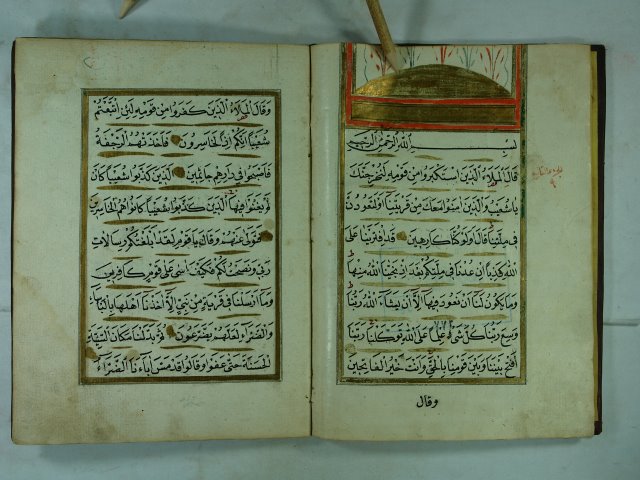 بسم الله الرحمن الرحيم
قال الملاء الذين استكبروا من قومه لنخرجنك
يا شعيب والذين امنوا معك من قريتنا او لتعودن
في ملتنا قال اولو كنا كارهين قد افترينا على
الله كذبا ان عدنا في ملتكم بعد اذ نجينا الله منها
وما يكون لنا ان نعود فيها الا ان يشاء الله ربنا
وسع ربنا كل شيء علما على الله توكلنا ربنا
افتح بيننا وبين قومنا بالحق وانت خير الفاتحين
وقال
وقال الملاء الذين كفروا من قومه لئن اتبعتم
شعيبا انكم اذا لخاسرون فاخذتهم الرجفة
فاصبحوا في دارهم جاثمين الذين كذبوا شعيبا كان
لم يغنوا فيها الذين كذبوا شعيبا كانوا هم الخاسرين
فتولى عنهم وقال يا قوم لقد ابلغتكم رسالات
ربي ونصحت لكم فكيف اسى على قوم كافرين
وما ارسلنا في قرية من نبي الا اخذنا اهلها بالباساء
والضراء لعلهم يضرعون ثم بدلنا مكان السيئة
الحسنة حتى عفوا وقالوا قد مس اباءنا الضراء